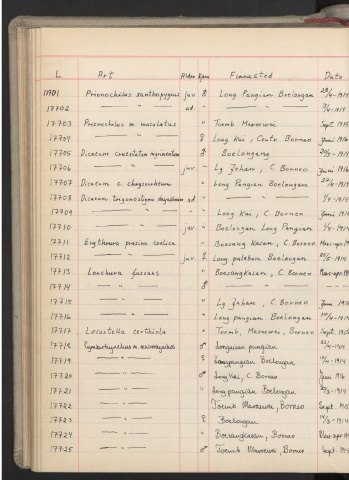 L Art Alder Kjønn Finnested Dato
17701 Prionochilus xanthopygius juv. ♂ Long Pangian Boelongan 28/4-1914
17702 — " — ad. " — " — 3/4-1914
17703 Prionochilus m. maculatus " Toemb. Maroewei Sept. 1915
17704 — " — ♀ Long Kai, Centr. Borneo Juni 1916
17705 Dicaeum cruentatum nigrimentum ♂ Boelongang 20/3-1914
17706 — " — juv. " Lg Zeham, C. Borneo Juni 1916
17707 Dicaeum c. chrysorrheum " Long Pangian Boelongan 27/4-1914
17708 Dicaeum trigonostigma ad " — " — 1/4-1914
17709 — " — " " Long Kai, C. Borneo Juni 1914
17710 — " — juv " Boelongan Long Pangian 1/4-1914
17711 Erythrura prasina coelica " Boesang Kasau, C. Borneo Mar-apr. 19
17712 — " — juv. ♀ Long paleban Boelongan 25/5-1914
17713 Lonchura fuscans " Boesangkasau, C. Borneo Mar-apr. 19
17714 — " — ♂ — " —
17715 — " — " Lg Zeham, C. Borneo Juni 1916
17716 — " — " Long pangian Boelongan 10/4-1914
17717 Locustella certhiola " Toemb. Maroewei, Borneo Sept. 1915
17718 Cymbirhynchus m. macrorhynchos ♂ Longuian pungian 23/4-1914
17719 — " — ♀ Longpangian Boelongan 10/4-1914
17720 — " — ♂ Long Kai, C. Borneo Juni 1916
17721 — " — " Long pangian Boelongan 27/3-1914
17722 — " — Toemb Maroewei, Borneo Sept. 1915
17723 — " — ♀ Boelongan 14/3-1914
17724 — " — " Boesangkasau, Borneo Mar-apr. 19
17725 — " — ♂ Toemb Maroewei, Borneo Sept. 1915